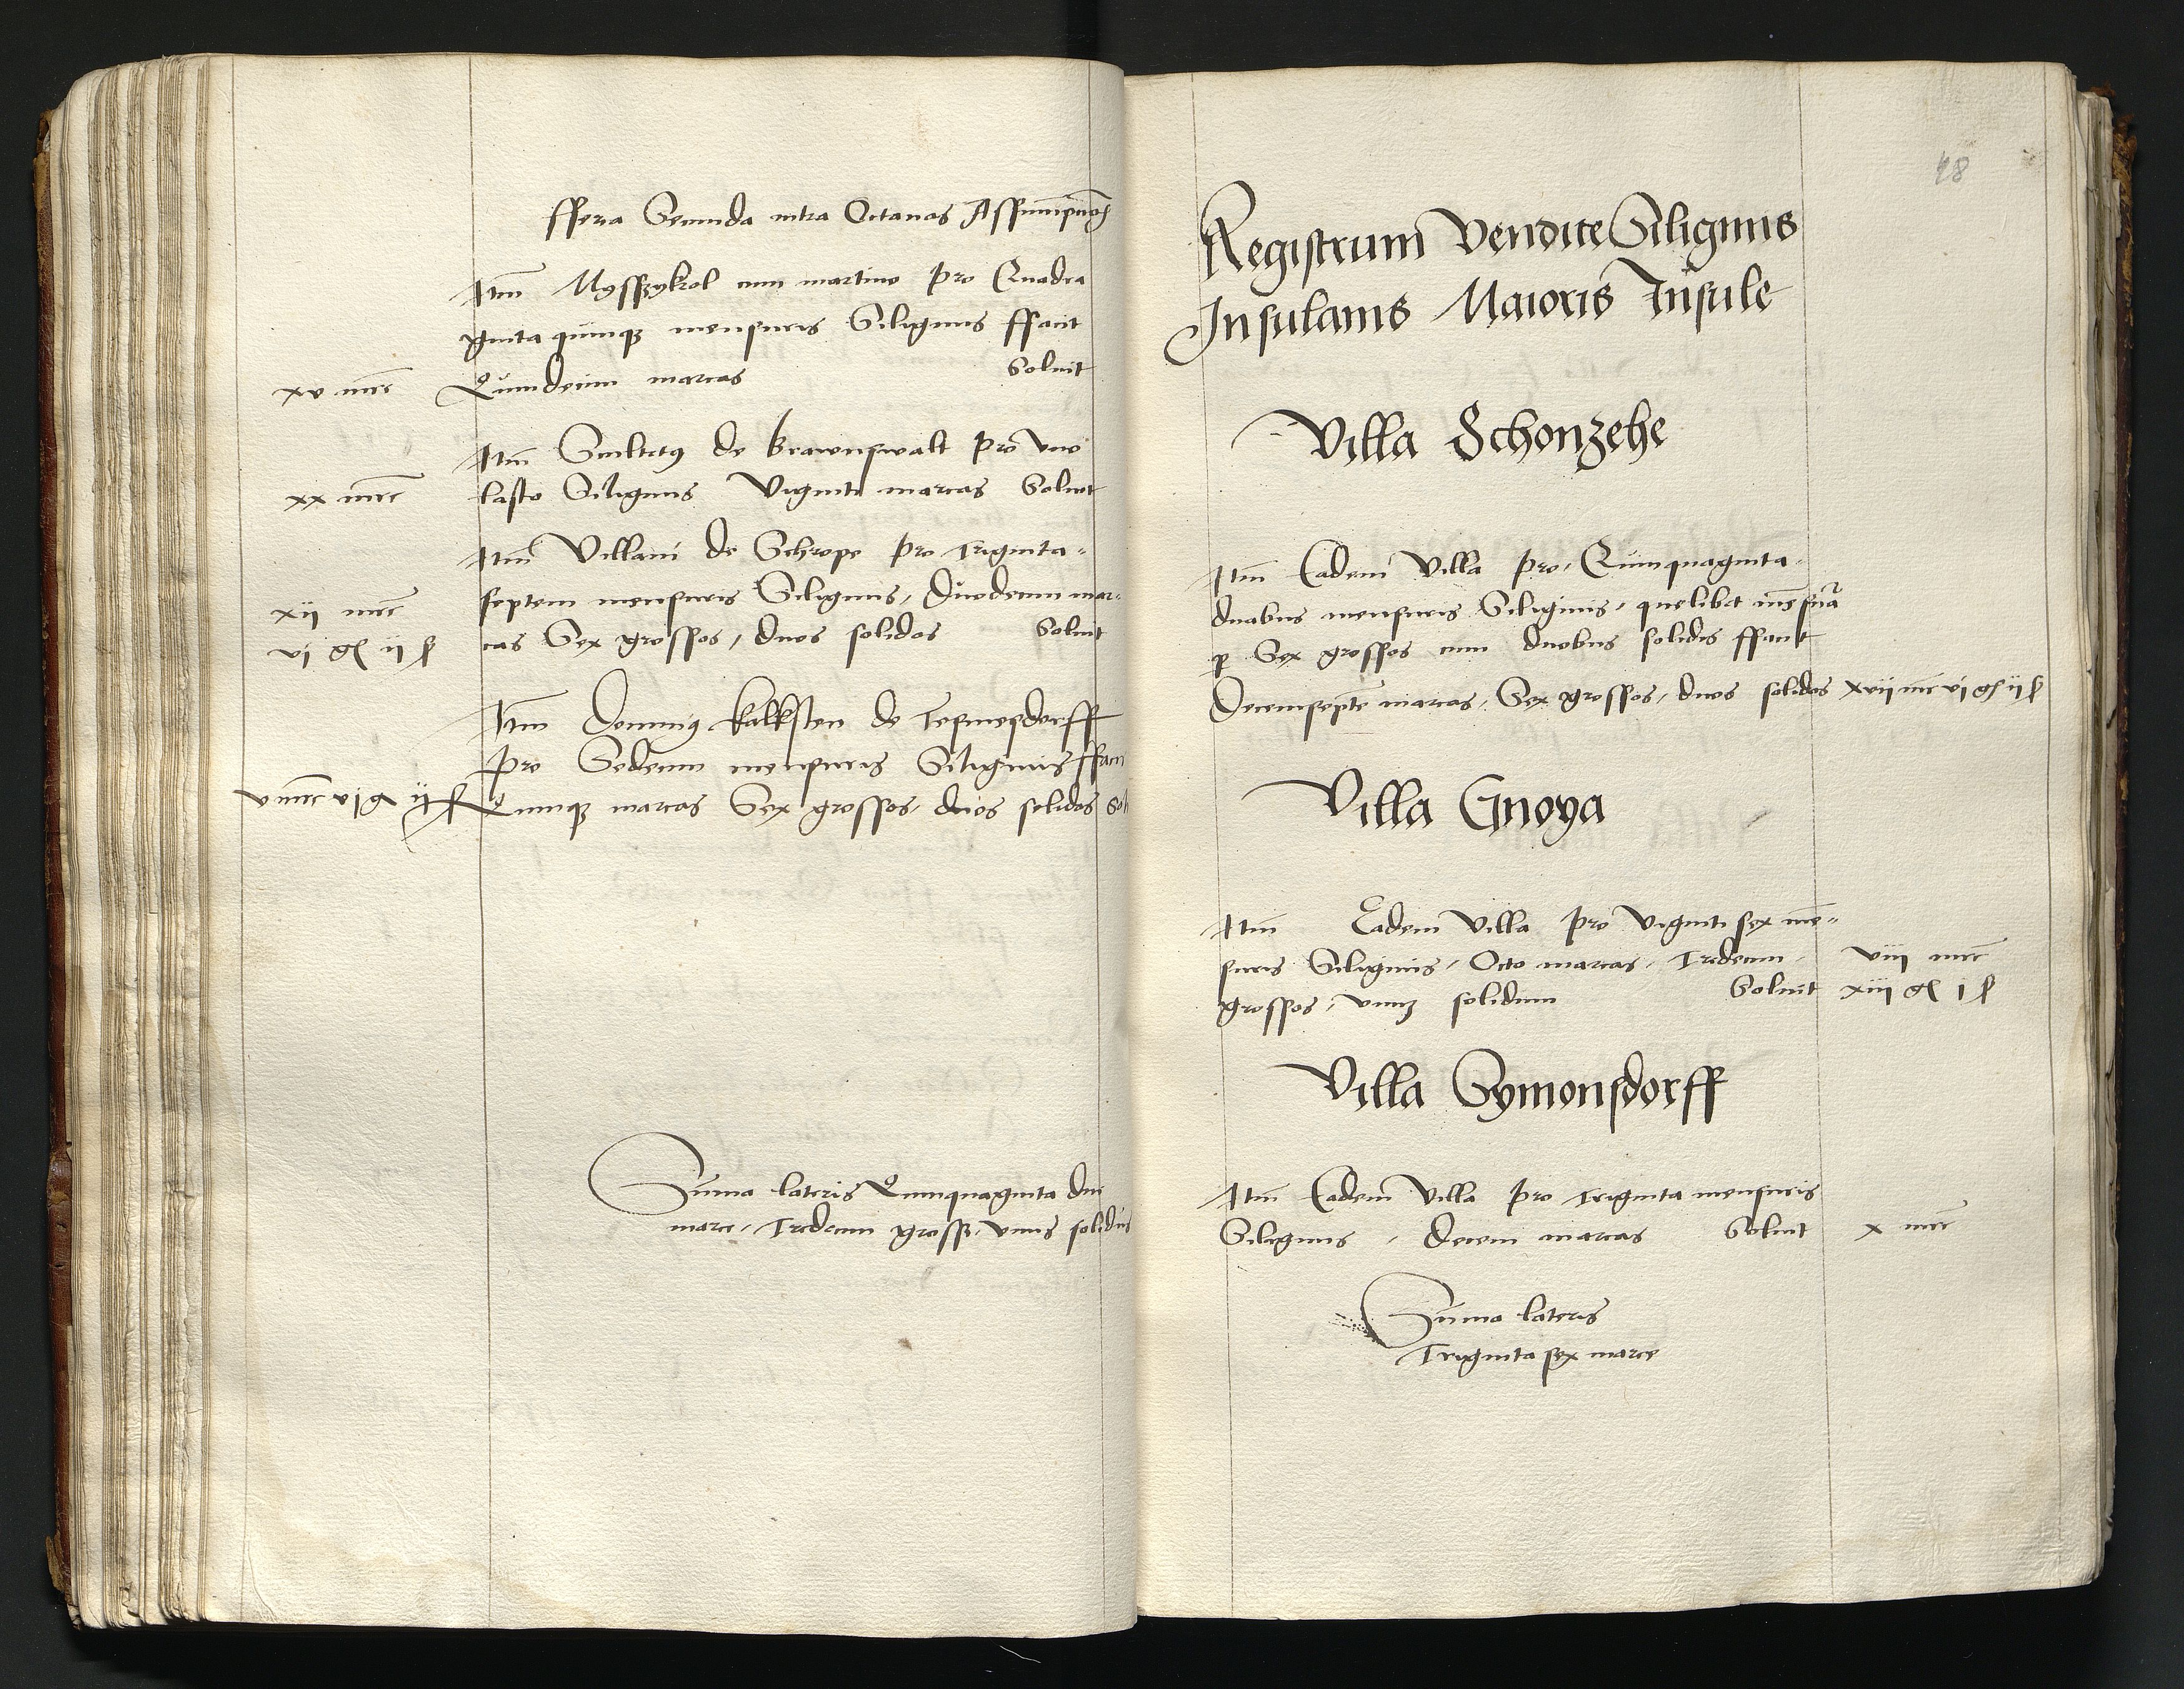 fferia Secunda intra Octauas Assumpcionis
Itm̄ Nysszykrol cum martino pro Quadra
ginta quinqꝫ mensuris Siliginis ffacit
xv mrc Quindecim marcas Soluit
Itm̄ Scultetꝰ de brawnswalt pro vno
xx mrc lasto Siliginis Viginti marcas Soluit
Itm̄ Villani de Schrope pro triginta-
xij mrc septem mensuris Siliginis, Duodecim mar-
vj gͬ ij ß cas Sex grossos, duos solidos Soluit
Itm̄ Dominꝰ kalksten de Tesmesdorff
pro Sedecim mensuris Siliginis ffaci
v mrc vj g ij ß Quinqꝫ marcas Sex grossos, duos solidos Sol
Suma lateris Quinquaginta due
marce, Tredecim gross, vnus solidus
48
Registrum Vendite Siliginis
Insulanis Maioris Insule
Villa Schonzehe
Itm̄ Eadem Villa pro, Quinquaginta-
duabus mensuris Siliginis, quelibet mēsura
ꝑ Sex grossos cum duobus solidis ffaciūt
Decemseptē marcas, Sex grossos, duos solidos xvij mrc vj gͬ ij ß
Villa Gnoya
Itm̄ Eadem Villa pro Viginti sex men-
suris Siliginis, Octo marcas, Tredecim, viij mrc
grossos, vnuꝫ solidum Soluit xiij gͬ j ß
Villa Symonsdorff
Itm̄ Eadem Villa pro triginta mensuris
Siliginis, decem marcas Soluit x mrc
Suma lateris
Triginta sex marce